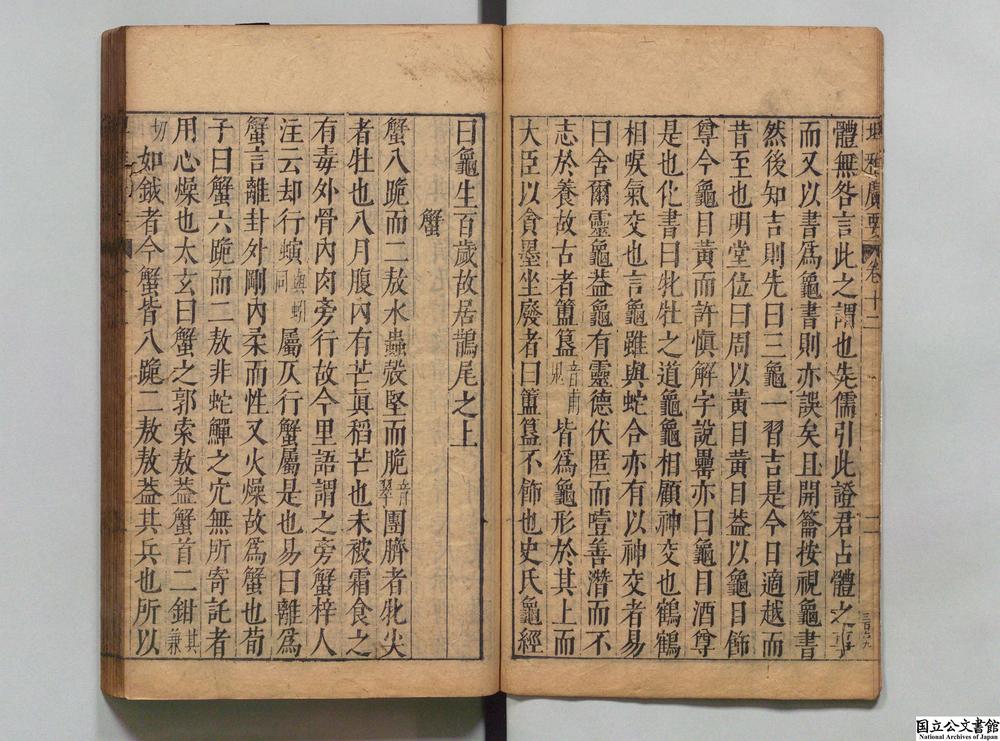 埤雅廣要 卷十二 二
體無咎言此之謂也先儒引此證君占體之事
而又以書爲龜書則亦誤矣且開籥按視龜書
然後知吉則先曰三龜一習吉是今日適越而
昔至也明堂位曰周以黄目黄目葢以龜目飾
尊今龜目黄而許愼解字說罍亦曰龜目酒尊
是也化書曰牝牡之道龜龜相顧神交也鶴鶴
相唳氣交也言龜雖與蛇合亦有以神交者易
曰舍爾靈龜葢龜有靈德伏匿而噎善潛而不
志於養故古者簠簋音甫 皆爲龜形於其上而
大臣以貪墨坐廢者曰簠簋不飾也史氏龜經
曰龜生百歲故居鵲尾之上
蟹
蟹八跪而二敖水蟲殼堅而脆音翠團臍者牝尖
者牡也八月腹內有芒真稻芒也未被霜食之
有毒外骨內肉旁行故今里語謂之旁蟹梓人
注云却行螾與蚓同屬仄行蟹屬是也易曰離爲
蟹言離卦外剛內柔而性又火燥故爲蟹也荀
子曰蟹六跪而二敖非蛇鱓之穴無所寄託者
用心燥也太玄曰蟹之郭索敖葢蟹首二鉗其兼
切如鉞者今蟹皆八跪二敖敖葢其兵也所以
国立公文書館
National Archives of Japan